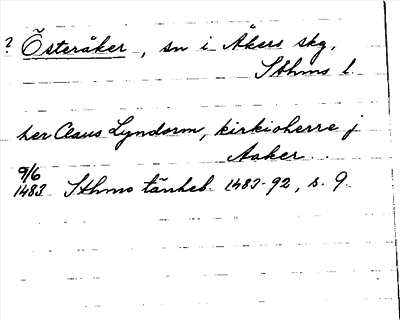 ? Österåker, sn i Åkers skg,
Sthms l.
her Claus Lyndorm, kirkioherre j
Aaker..
9/6
1483 Sthms tänkeb. 1483-92, s. 9.